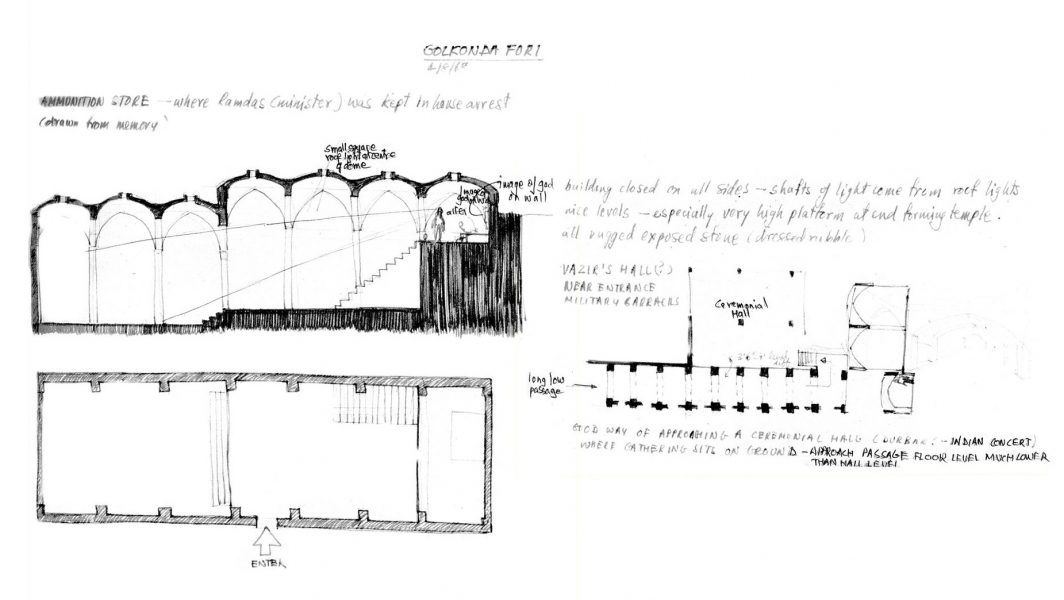 GOLKONDA FORT
AMMUNITION STORE - where Ramdas (minister) was kept in house arrest
(drawn from memory)
small square
roof light at centre
of dome
image of god
on wall
alter
building closed on all sides - shafts of light come from roof lights
nice levels - especially very high platform at end forming temple.
all rugged exposed stone (dressed rubble)
VAZIR'S HALL (?)
NEAR ENTRANCE
MILITARY BARRACKS
Ceremonial
Hall
long low
passage
GOOD WAY OF APPROACHING A CEREMONIAL HALL (DURBAR. - INDIAN CONCERT)
WHERE GATHERING SITS ON GROUND - APPROACH PASSAGE FLOOR LEVEL MUCH LOWER
THAN HALL LEVEL
ENTER